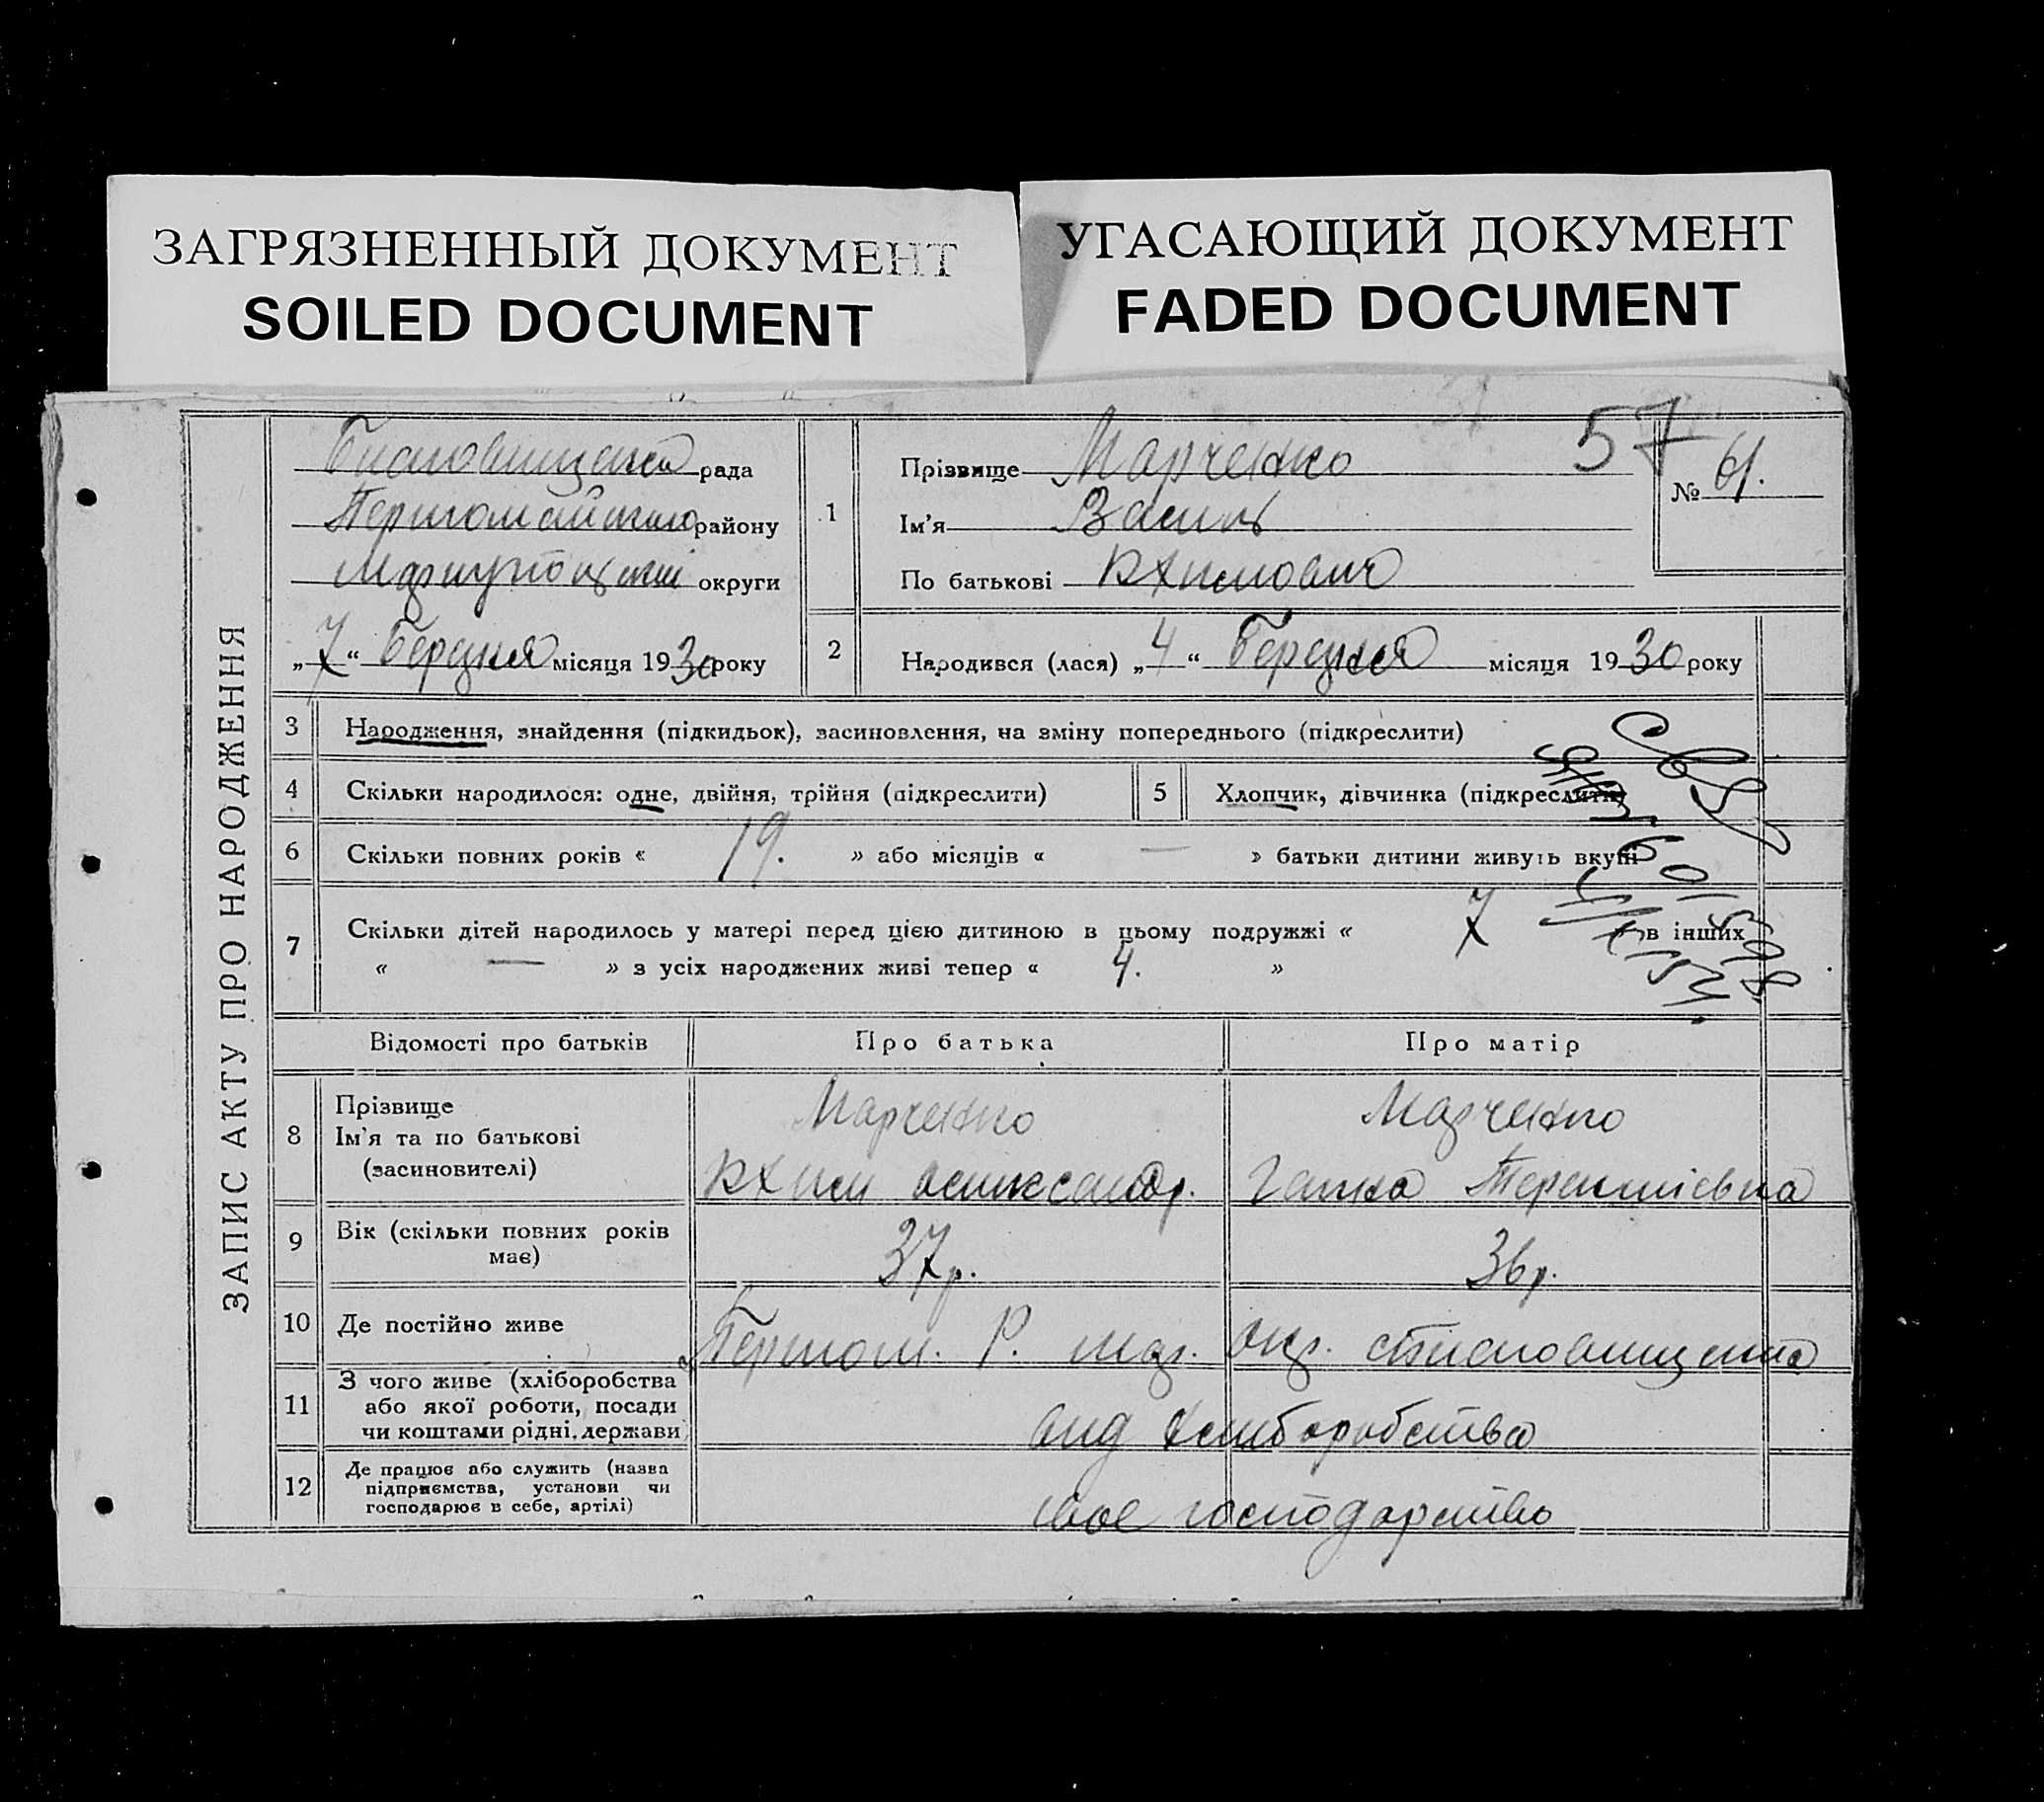 ЗАГРЯЗНЕННЫЙ ДОКУМЕНТ
SOILED DOCUMENT
УГАСАЮЩИЙ ДОКУМЕНТ
FADED DOCUMENT
ЗАПИС АКТУ ПРО НАРОДЖЕННЯ
рада
району
округи
„7“ Березня місяця 1930 року
57
№ 61.
1
Прізвище Марченко
Ім'я Василь
По батькові Юхимович
2
Народився (лася) „4“ Березня місяця 1930 року
3 Народження, знайдення (підкидьок), засиновлення, на зміну попереднього (підкреслити)
4 Скільки народилося: одне, двійня, трійня (підкреслити)
5 Хлопчик, дівчинка (підкреслити)
6 Скільки повних років « 19. » або місяців « — » батьки дитини живуть вкупі
7 Скільки дітей народилось у матері перед цією дитиною в цьому подружжі « 7 » в інших
« — » з усіх народжених живі тепер « 4. »
Відомості про батьків
Про батька
Про матір
8 Прізвище
Ім'я та по батькові
(засиновителі)
Марченко
Юхим Олександр.
Марченко
Ганна Терентіевна
9 Вік (скільки повних років
має)
37 р.
36 р.
10 Де постійно живе
Першом. Р. Мар. окр.
11 З чого живе (хліборобства
або якої роботи, посади
чи коштами рідні, держави
від хліборобства
12 Де працює або служить (назва
підприємства, установи чи
господарює в себе, артілі)
свое господарство